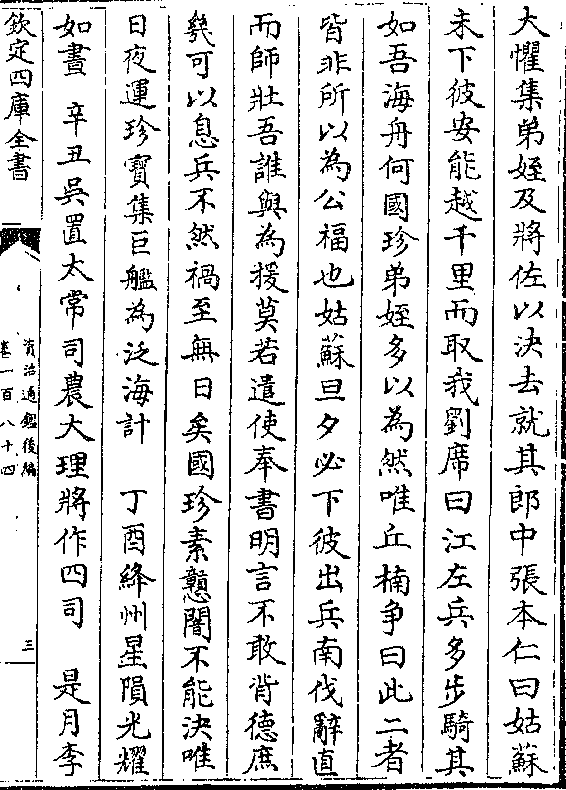 大懼集弟姪及將佐以決去就其郎中張本仁曰姑蘇
未下彼安能越千里而取我劉席曰江左兵多步騎其
如吾海舟何國珍弟姪多以為然唯丘楠爭曰此二者
皆非所以為公福也姑蘇旦夕必下彼出兵南伐辭直
而師壯吾誰與為援莫若遣使奉書明言不敢背德庶
幾可以息兵不然禍至無日矣國珍素戇闇不能決唯
日夜運珍寶集巨艦為泛海計 丁酉絳州星隕光耀
如晝 辛丑吳置太常司農大理將作四司 是月李
欽定四庫全書
資治通鑑後編
卷一百八十四
三